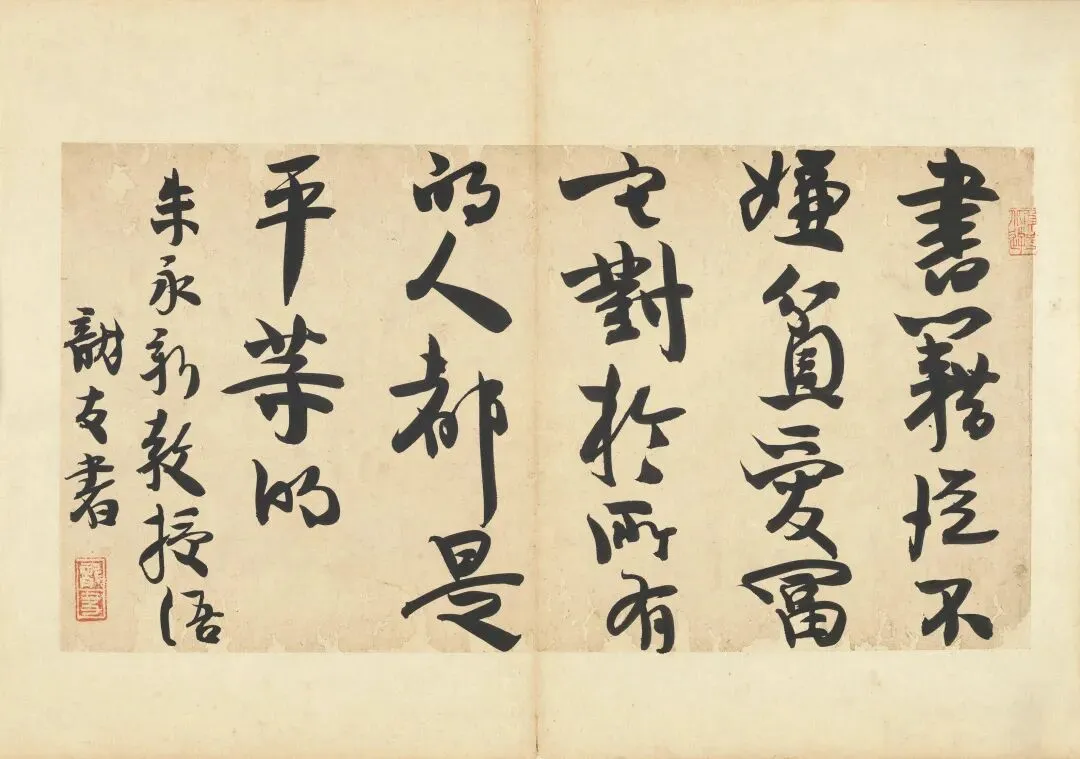 書籍從不
嫌貧愛富
它對於所有
的人都是
平等的
朱永新教授語
友書